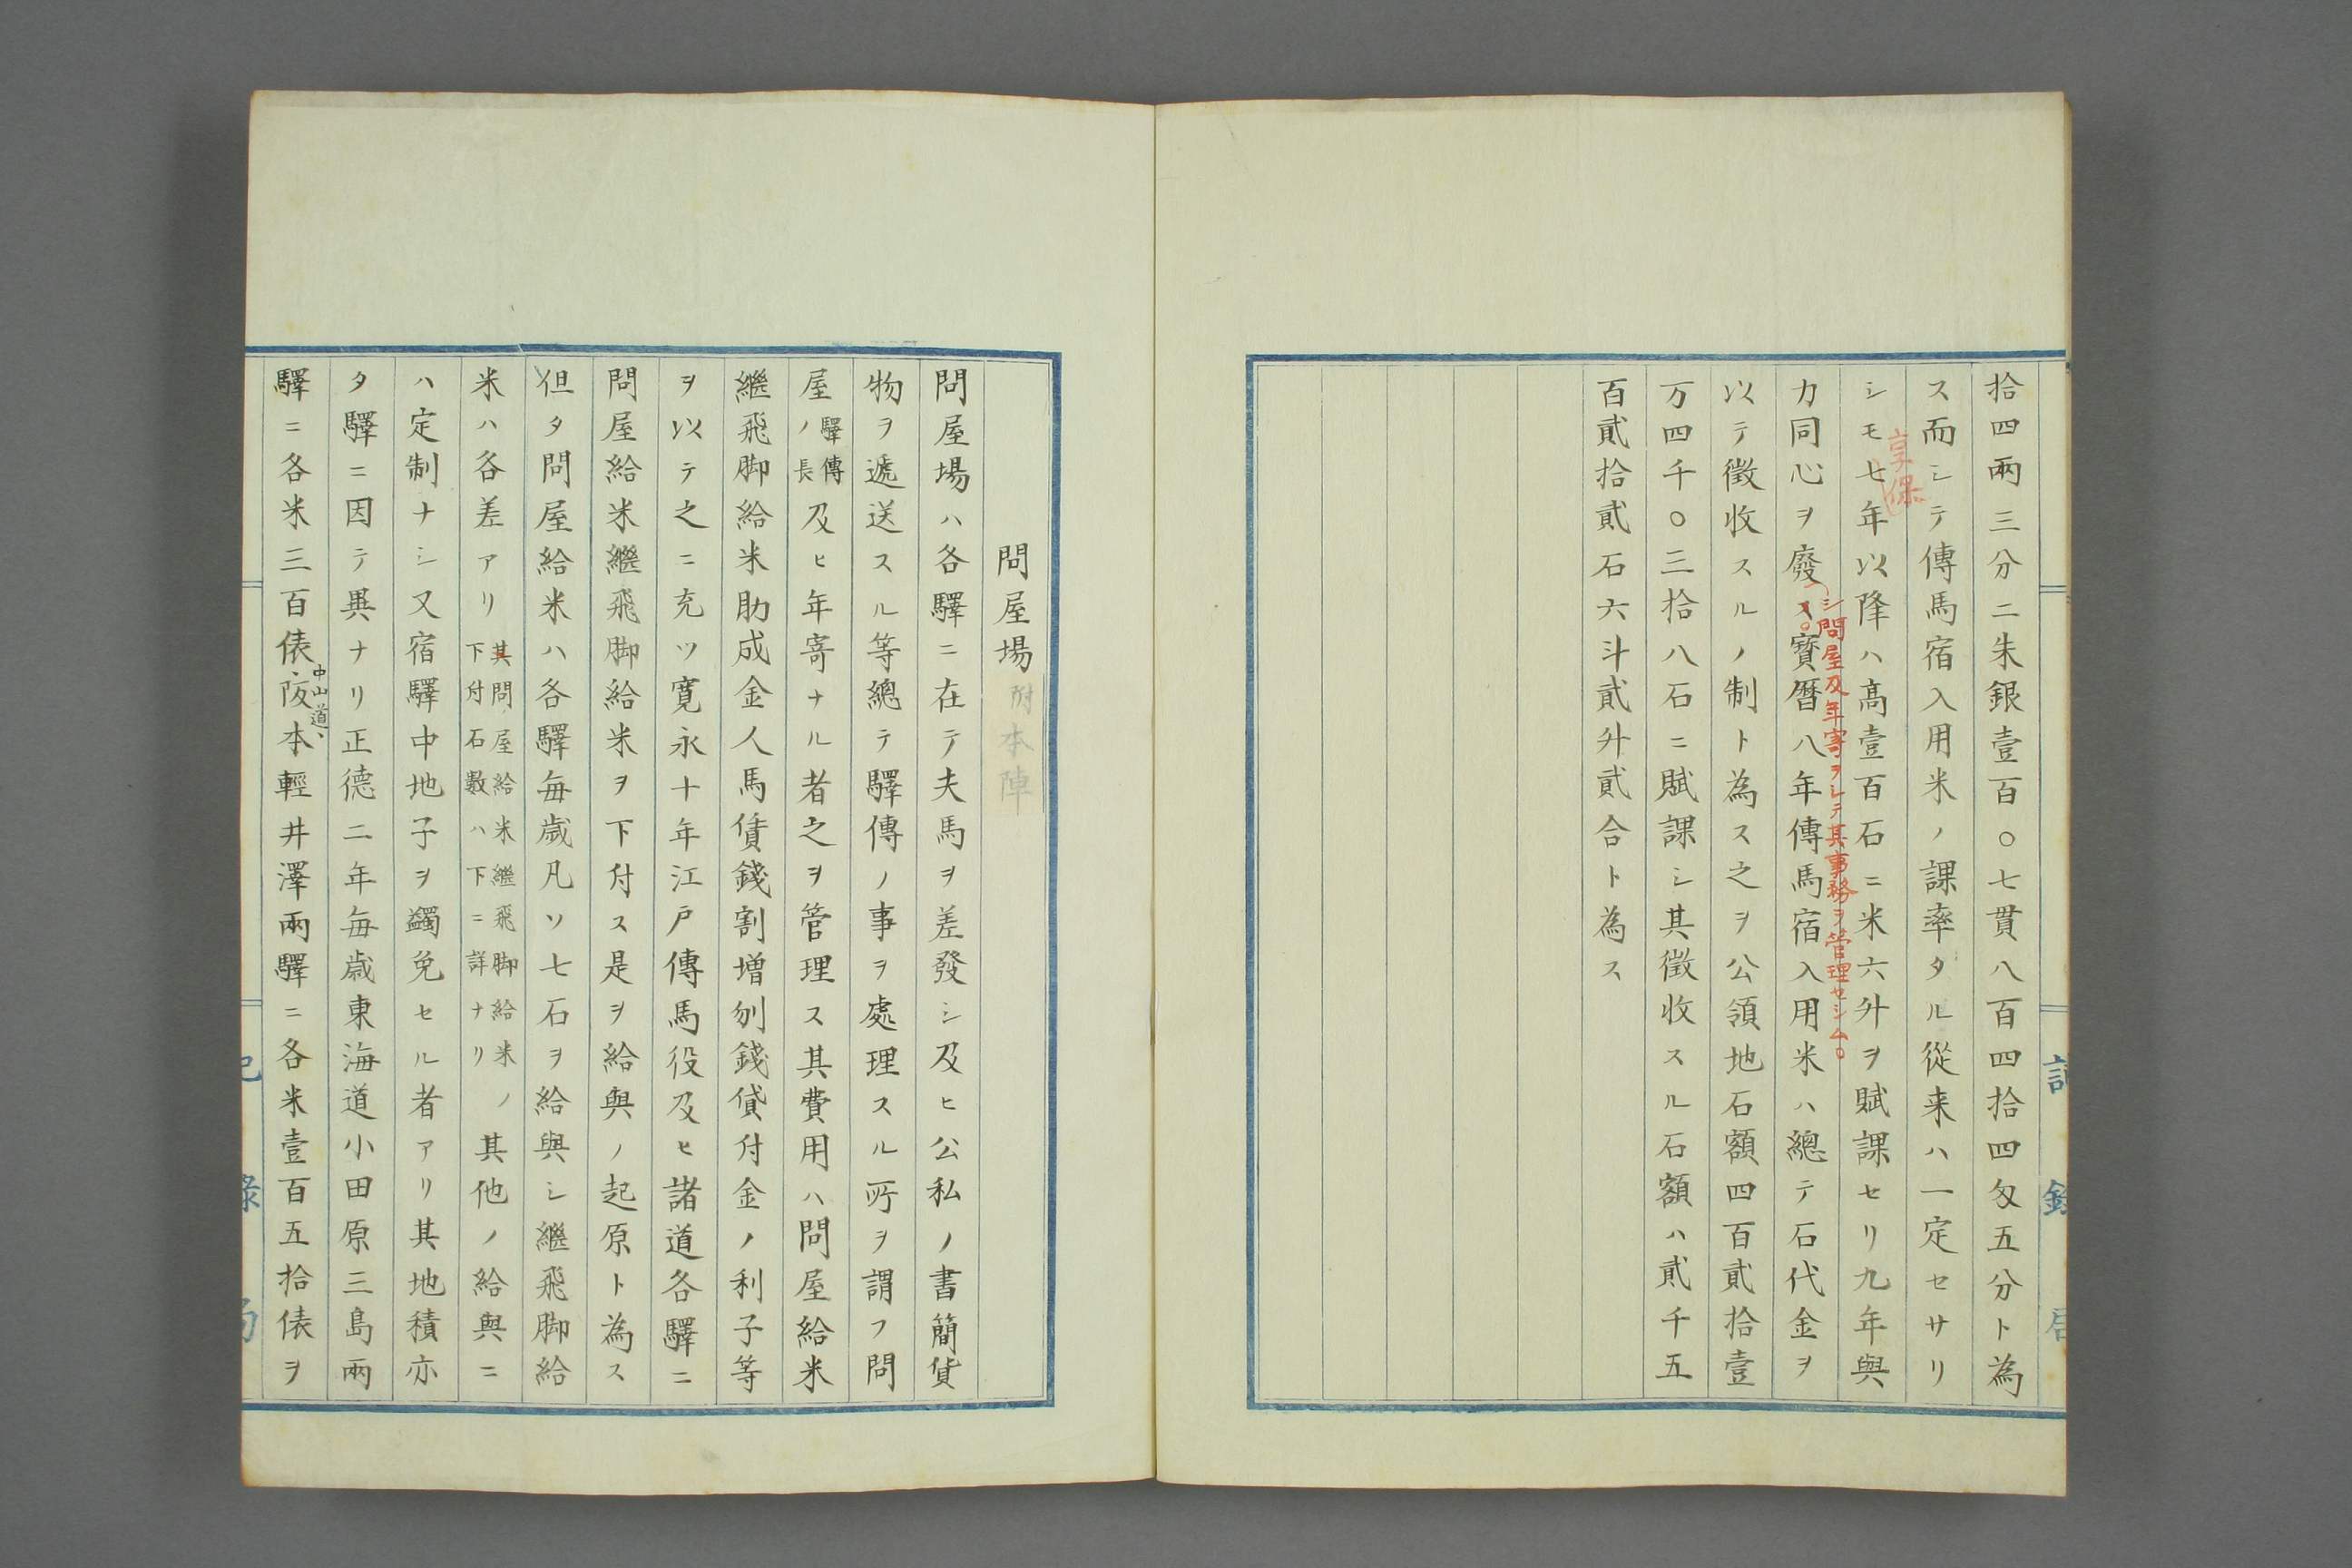 拾四兩三分二朱銀壹百〇七貫八百四拾四匁五分ト為
ス而シテ傳馬宿入用米ノ課率タル從来ハ一定セサリ
享保
シモ七年以降ハ高壹百石ニ米六升ヲ賦課セリ九年與
シ問屋及年寄ヲシテ其事務ヲ管理セシム○
力同心ヲ廢ス○寳暦八年傳馬宿入用米ハ總テ石代金ヲ
以テ徴收スルノ制ト為ス之ヲ公領地石額四百貳拾壹
万四千〇三拾八石ニ賦課シ其徴收スル石額ハ貳千五
百貳拾貳石六斗貳升貳合ト為ス
問屋場附本陣
問屋場ハ各驛ニ在テ夫馬ヲ差發シ及ヒ公私ノ書簡貨
物ヲ遞送スル等總テ驛傳ノ事ヲ處理スル所ヲ謂フ問
屋驛傳ノ長及ヒ年寄ナル者之ヲ管理ス其費用ハ問屋給米
繼飛脚給米助成金人馬賃錢割増刎錢貸付金ノ利子等
ヲ以テ之ニ充ツ寛永十年江戸傳馬役及ヒ諸道各驛ニ
問屋給米繼飛脚給米ヲ下付ス是ヲ給與ノ起原ト為ス
但タ問屋給米ハ各驛毎歳凡ソ七石ヲ給與シ繼飛脚給
米ハ各差アリ其問屋給米繼飛脚給米ノ下付石數ハ下ニ詳ナリ其他ノ給與ニ
ハ定制ナシ又宿驛中地子ヲ蠲免セル者アリ其地積亦
タ驛ニ因テ異ナリ正德二年毎歳東海道小田原三島兩
中山道、
驛ニ各米三百俵阪本輕井澤兩驛ニ各米壹百五拾俵ヲ